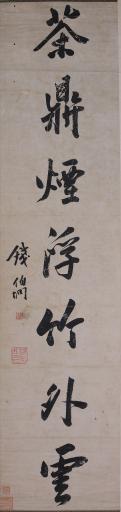 茶鼎煙浮竹外雲
錢伯坰